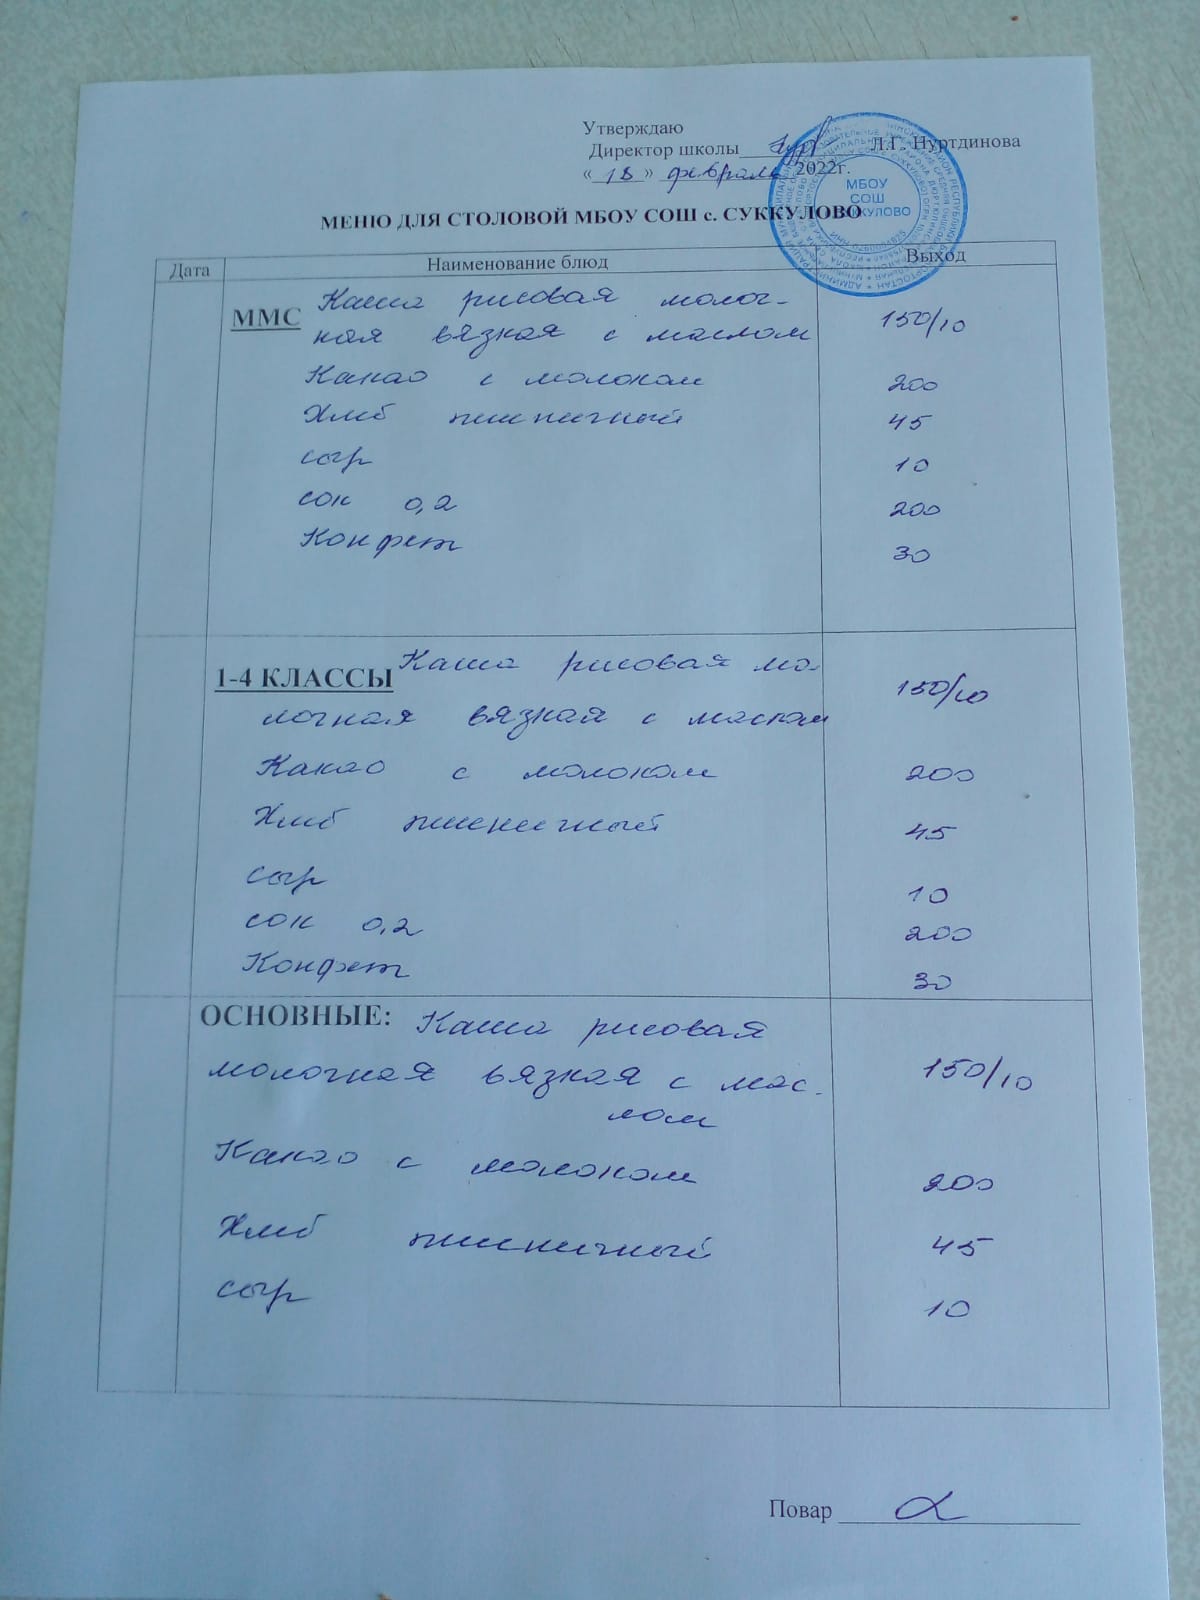 Утверждаю
Директор школы Л.Г. Нуртдинова
« 18 » февраля 2022г.
МБОУ
СОШ
СУККУЛОВО
МЕНЮ ДЛЯ СТОЛОВОЙ МБОУ СОШ с. СУККУЛОВО
Дата Наименование блюд Выход
ММС Каша рисовая молоч-
ная вязкая с маслом 150/10
Какао с молоком 200
Хлеб пшеничный 45
сыр 10
сок 0,2 200
Конфет 30
1-4 КЛАССЫ Каша рисовая мо-
лочная вязкая с маслом 150/10
Какао с молоком 200
Хлеб пшеничный 45
сыр 10
сок 0,2 200
Конфет 30
ОСНОВНЫЕ: Каша рисовая
молочная вязкая с мас- 150/10
лом
Какао с молоком 200
Хлеб пшеничный 45
сыр 10
Повар